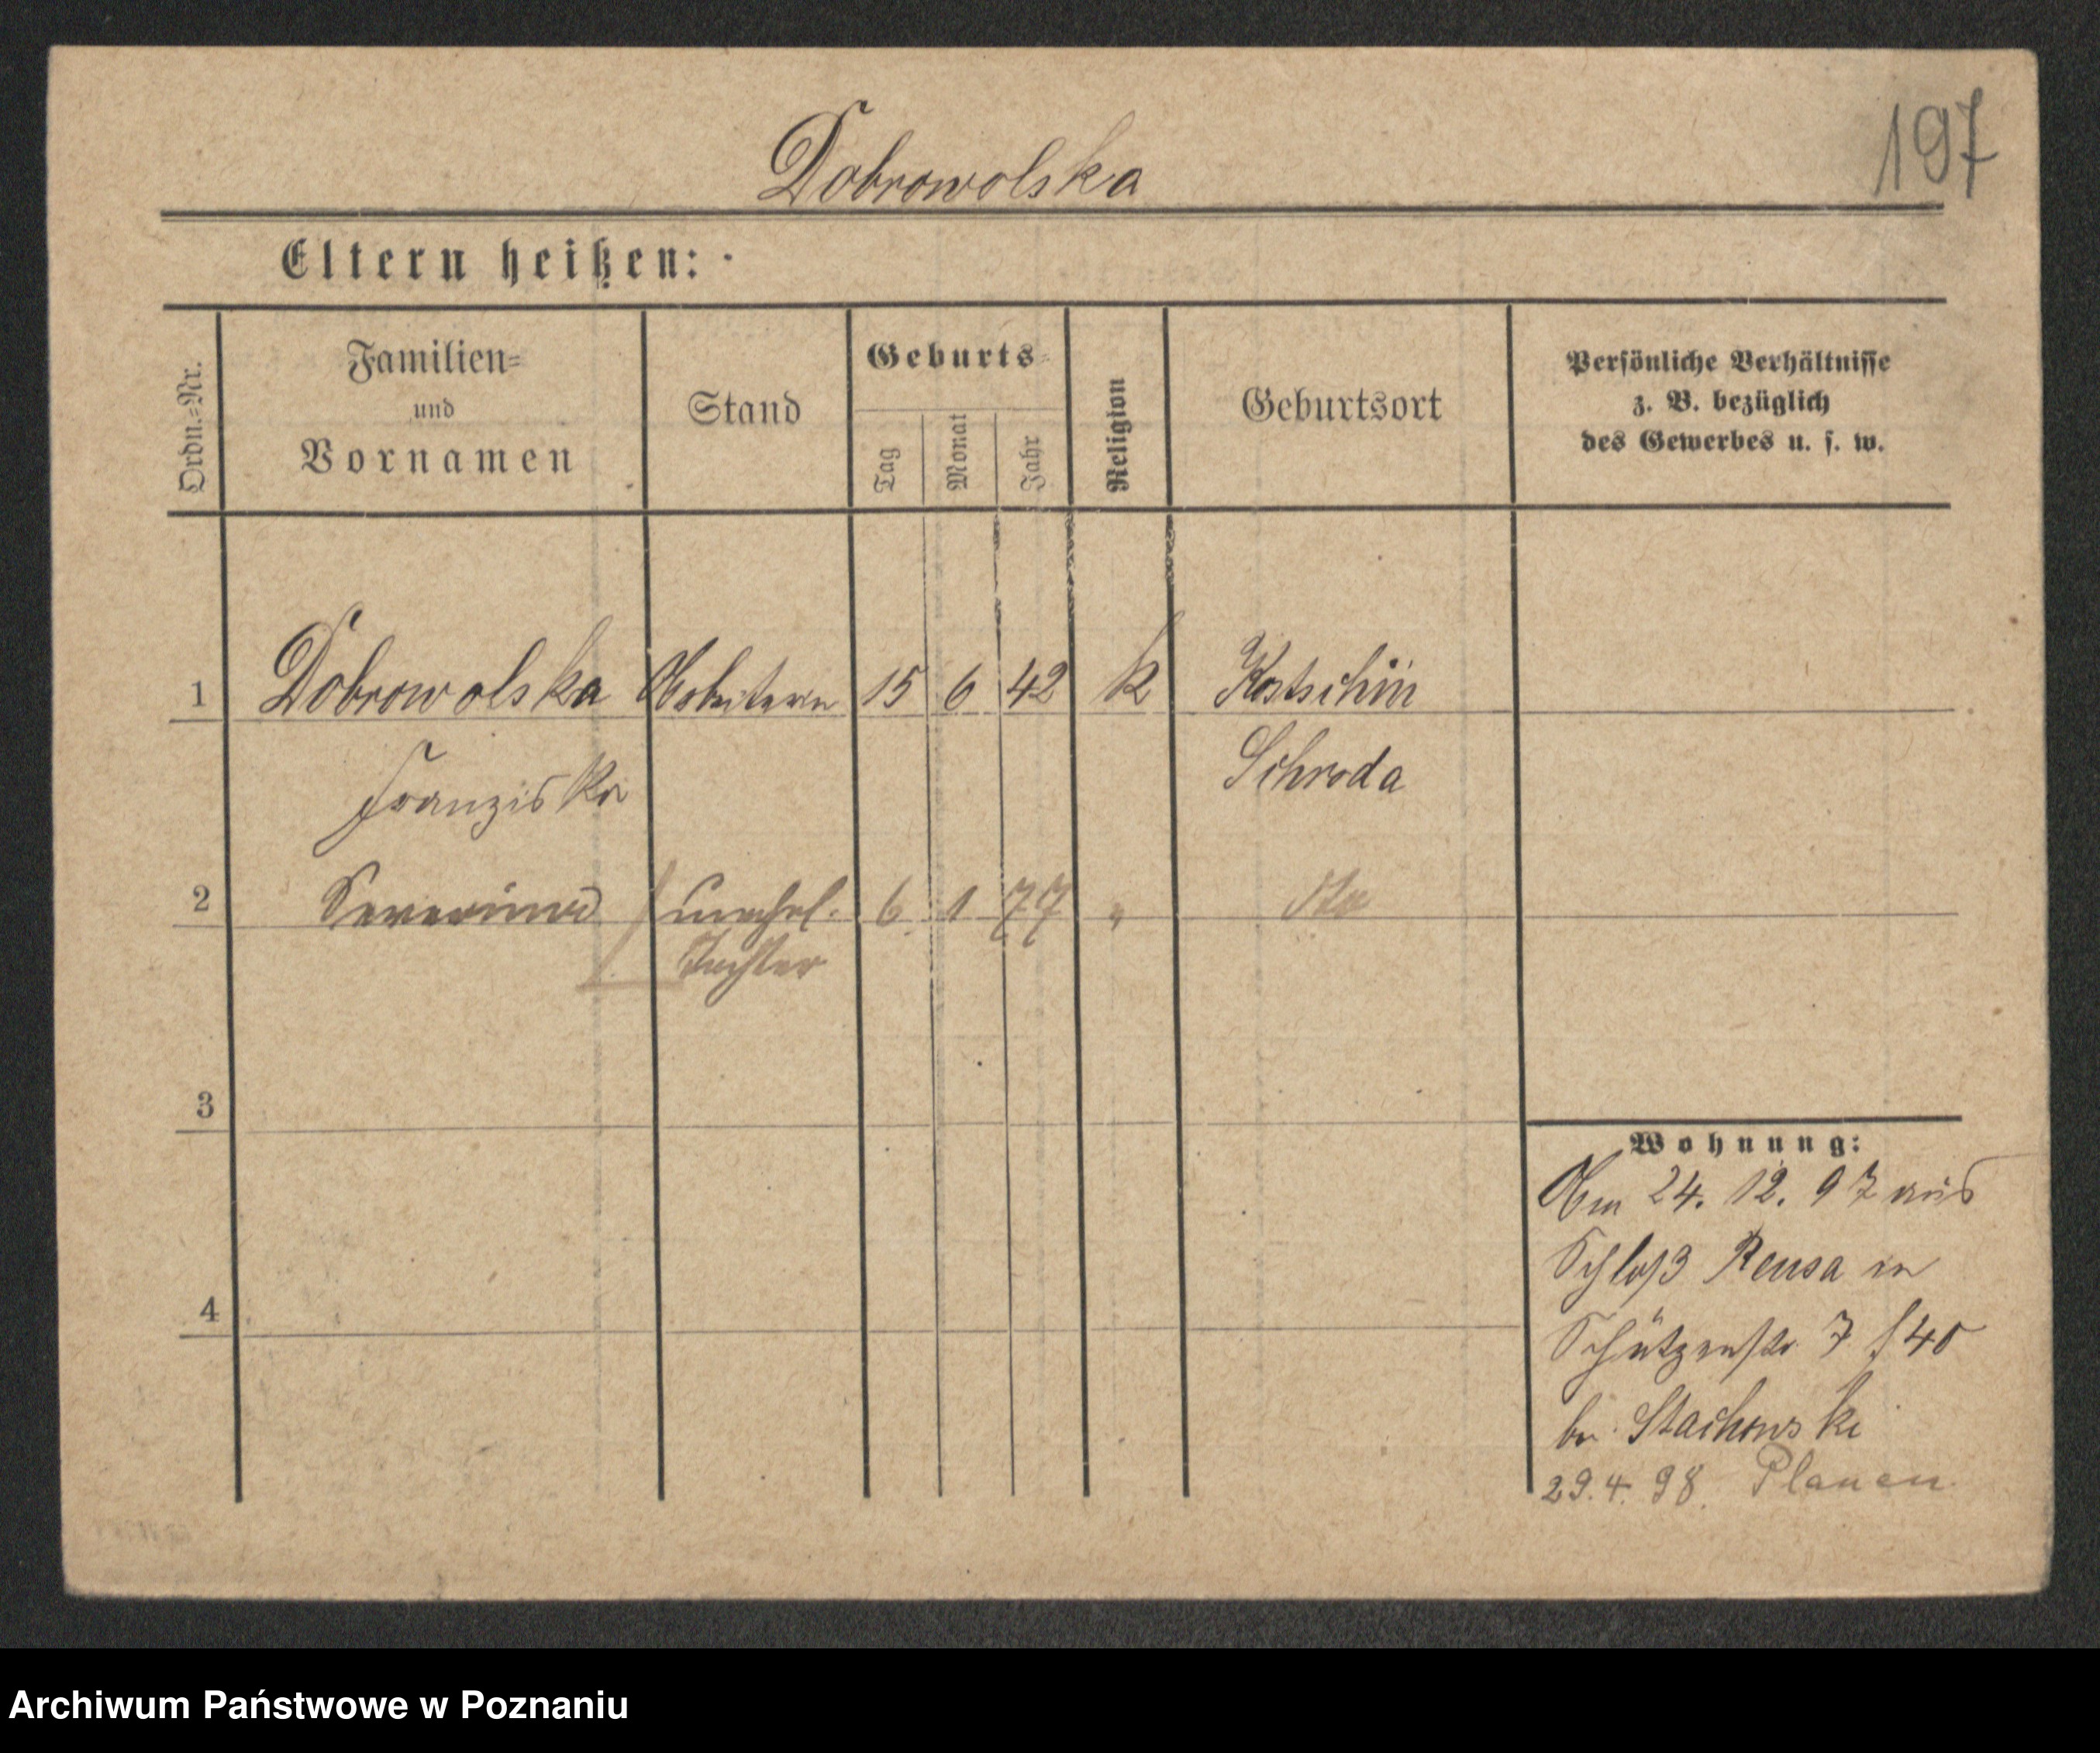 197
Dobrowolska
Eltern heißen:
Ordn.=Nr.
Familien=
und
Vornamen
Stand
Geburts=
Tag
Monat
Jahr
Religion
Geburtsort
Persönliche Verhältnisse
z. B. bezüglich
des Gewerbes u. s. w.
1 Dobrowolska Arbeiterin 15 6 42 k Kostschin
Franziska Schroda
2 unehel. 6 1 77 " dto
Tochter
3
4
Wohnung:
Am 24. 12. 97 aus
Schloß Reusa in
Schützenstr. 7
bei Stachowski
29. 4. 98. Plauen
Archiwum Państwowe w Poznaniu